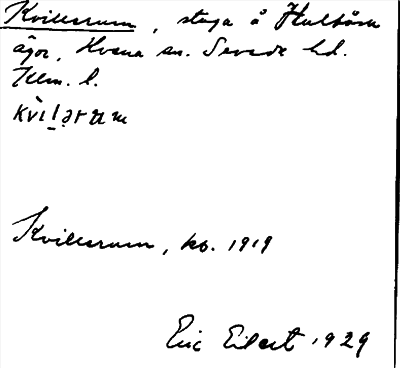 Kvillesrum, stuga å Hultåsa
ägor, Hvena sn. Sevede hd.
Klm. l.
Kvillesrum, kb. 1919
Eric Eilert 1929